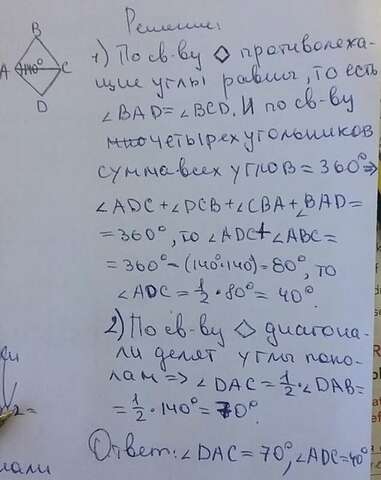 Решение:
B
A 140° C
D
1) По св-ву ◇ противолежа-
щие углы равны, то есть
∠BAD=∠BCD. И по св-ву
четырехугольников
сумма всех углов = 360° ⇒
∠ADC+∠DCB+∠CBA+∠BAD=
=360°, то ∠ADC+∠ABC=
=360°-(140°·140)=80°, то
∠ADC=½·80°=40°.
2) По св-ву ◇ диагона-
ли делят углы попо-
лам => ∠DAC=½·∠DAB=
=½·140°=70°.
Ответ: ∠DAC=70°, ∠ADC=40°